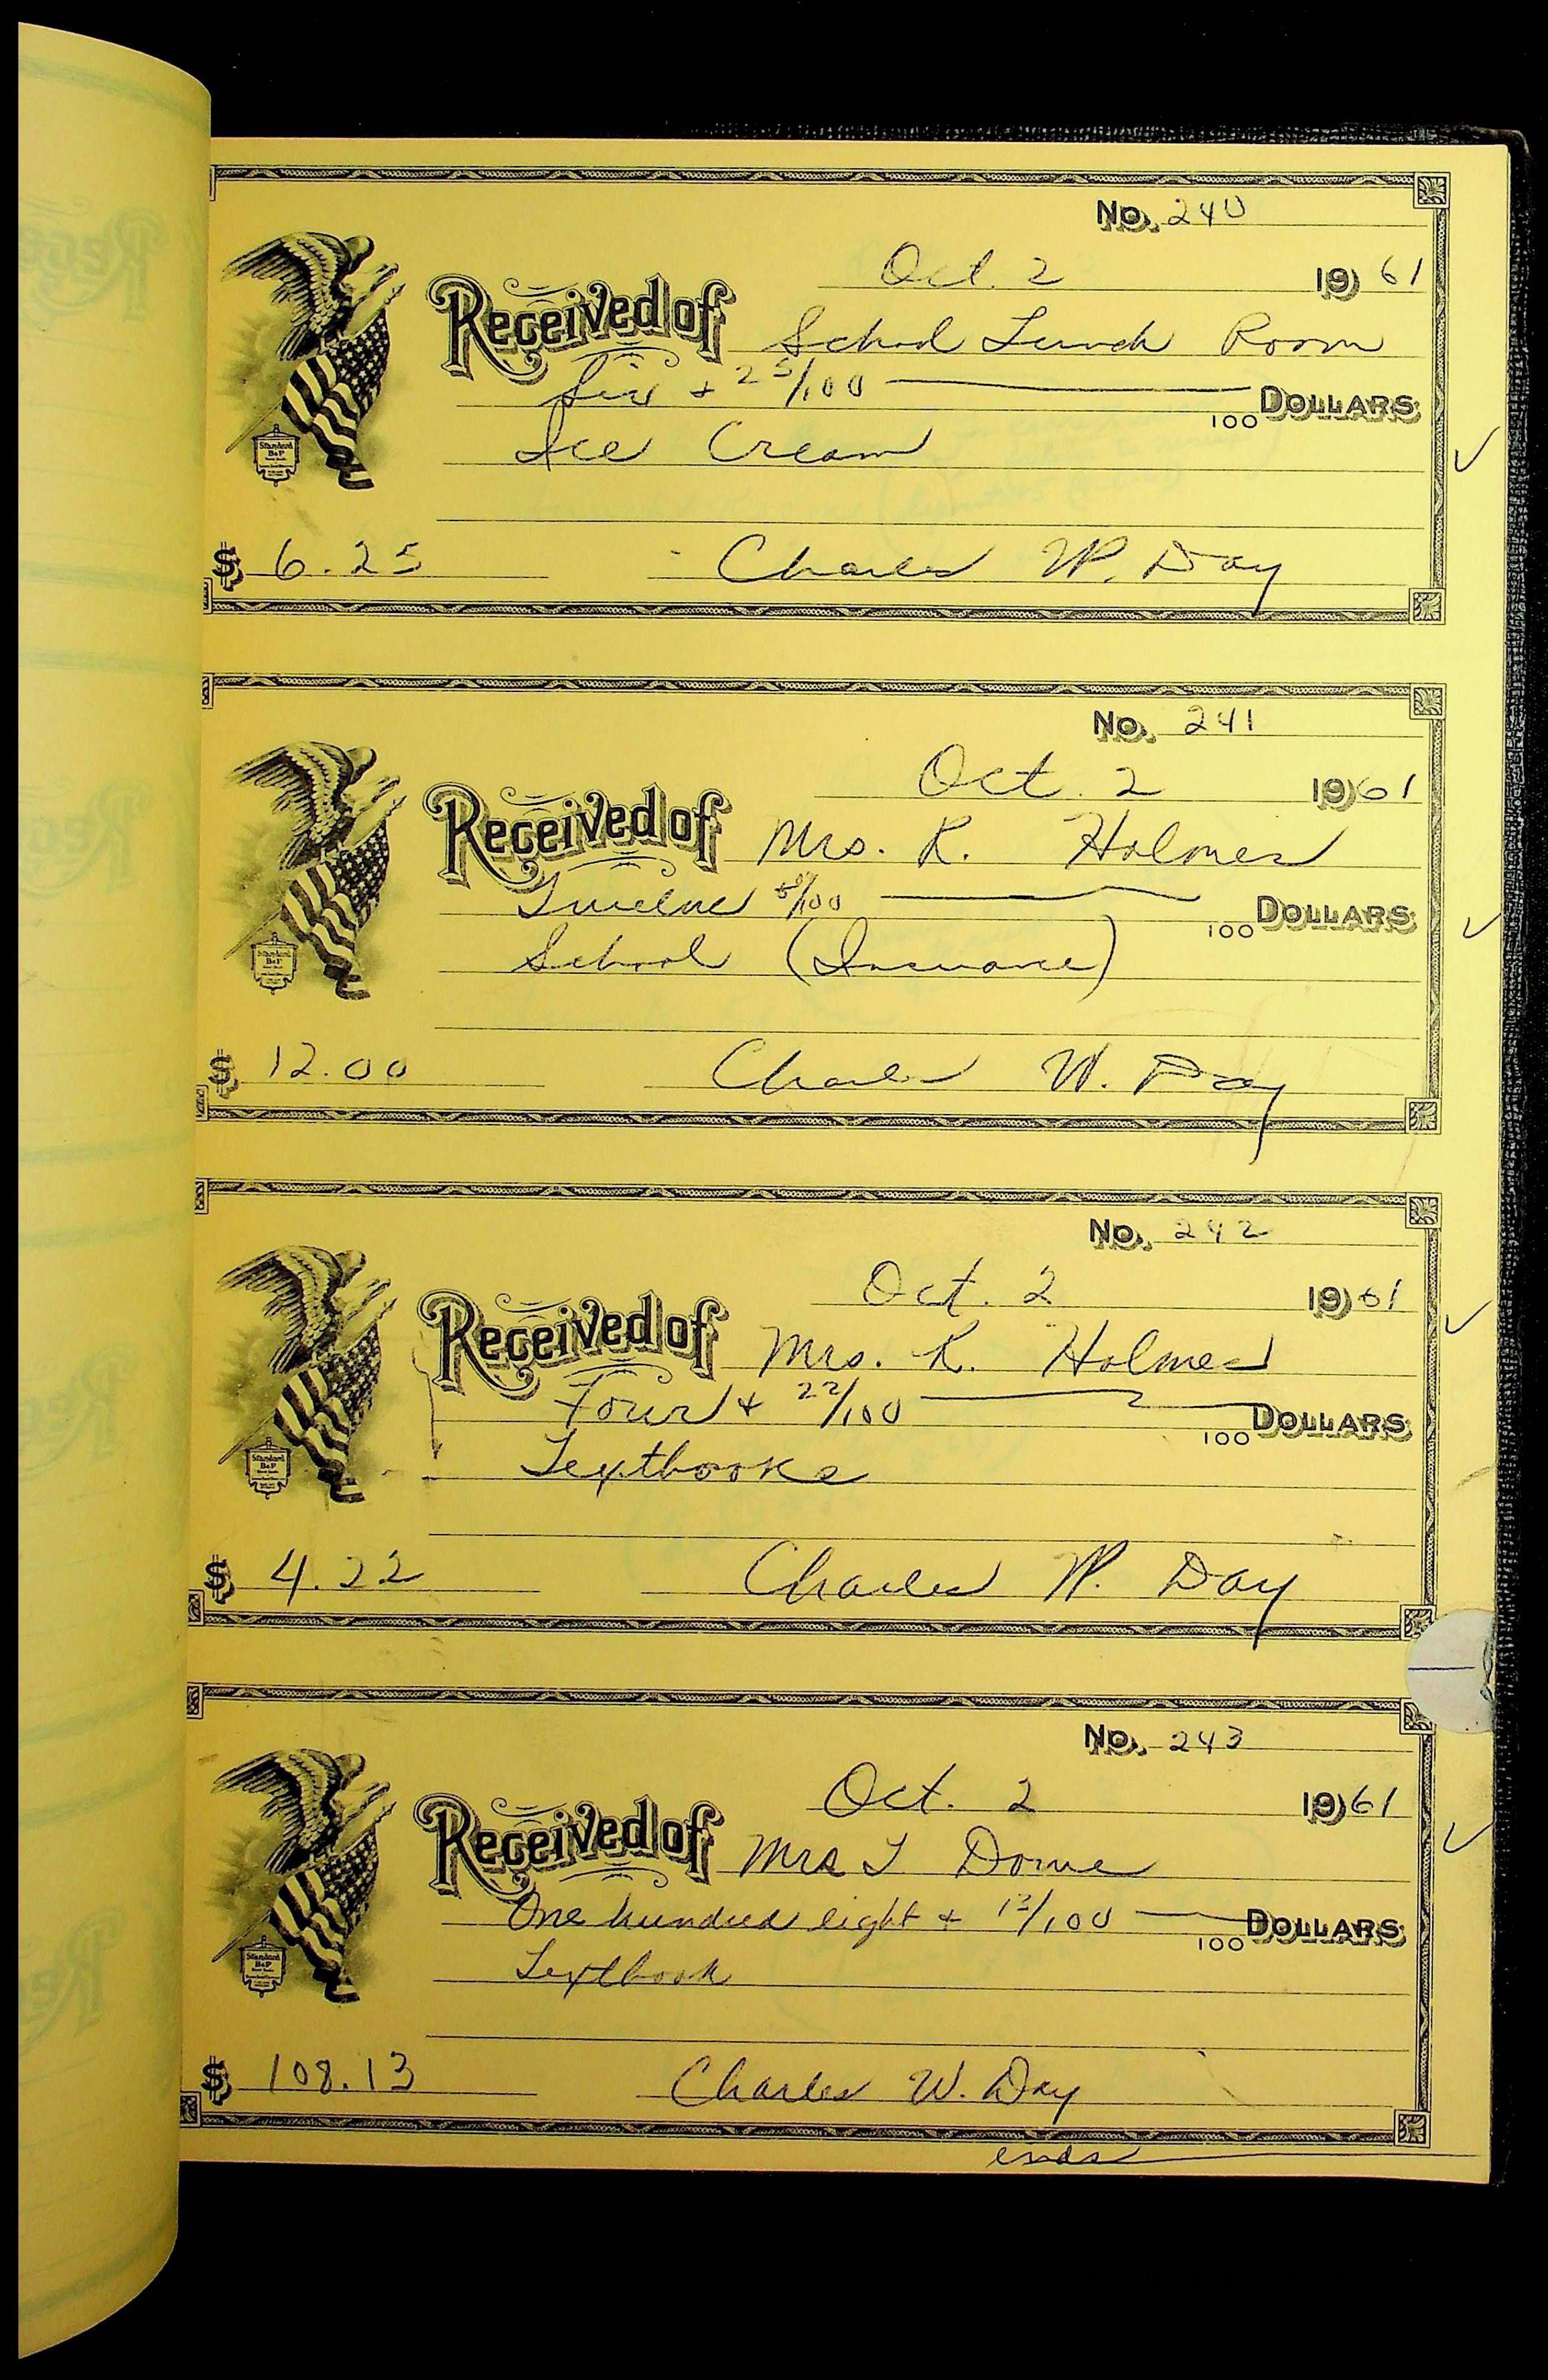 No. 240
Oct. 2 1961
Received of School Lunch Room
Six + 25/100 100 DOLLARS
Ice Cream
Standard
B&P
$ 6.25 Charles W. Day
No. 241
Oct. 2 1961
Received of Mrs. R. Holmes
Twelve /100 100 DOLLARS
School (Insurance)
Standard
B&P
$ 12.00 Charles W. Day
No. 242
Oct. 2 1961
Received of Mrs. R. Holmes
Four + 22/100 100 DOLLARS
Textbooks
Standard
B&P
$ 4.22 Charles W. Day
No. 243
Oct. 2 1961
Received of Mrs
One hundred eight + 13/100 100 DOLLARS
Textbook
Standard
B&P
$ 108.13 Charles W. Day
ends